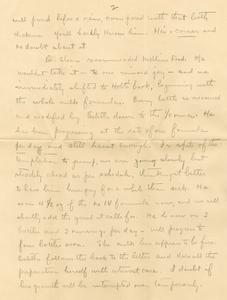 2
will find before a nurse, even fared with that bottle
You'll hardly know him. He's a corker and
no doubt about it
Dr. Sloan recommended Mellins Food. He
wouldn't take it in the mornings and we
immediately shifted to Holts book, beginning with
the whole milk formulas. Every bottle is measured
and modified by Estelle down to the He
has been progressing at the rate of one formula
per day and still hasn't enough. In spite of the
temptation to jump, we are going slowly but
steadily ahead as per schedule, thinking it better
to have him hungry for a while than sick. He
now 4½ oz of the No IV formula now, and we will
shortly add the great a calls for. He is now on 3
bottles and 3 nursings per day - will progress to
four bottles soon. The milk has appears to be fine
Estelle follows the book to the letter and does all the
preparation herself with utmost care. I doubt if
his growth will be interrupted even temporarily.